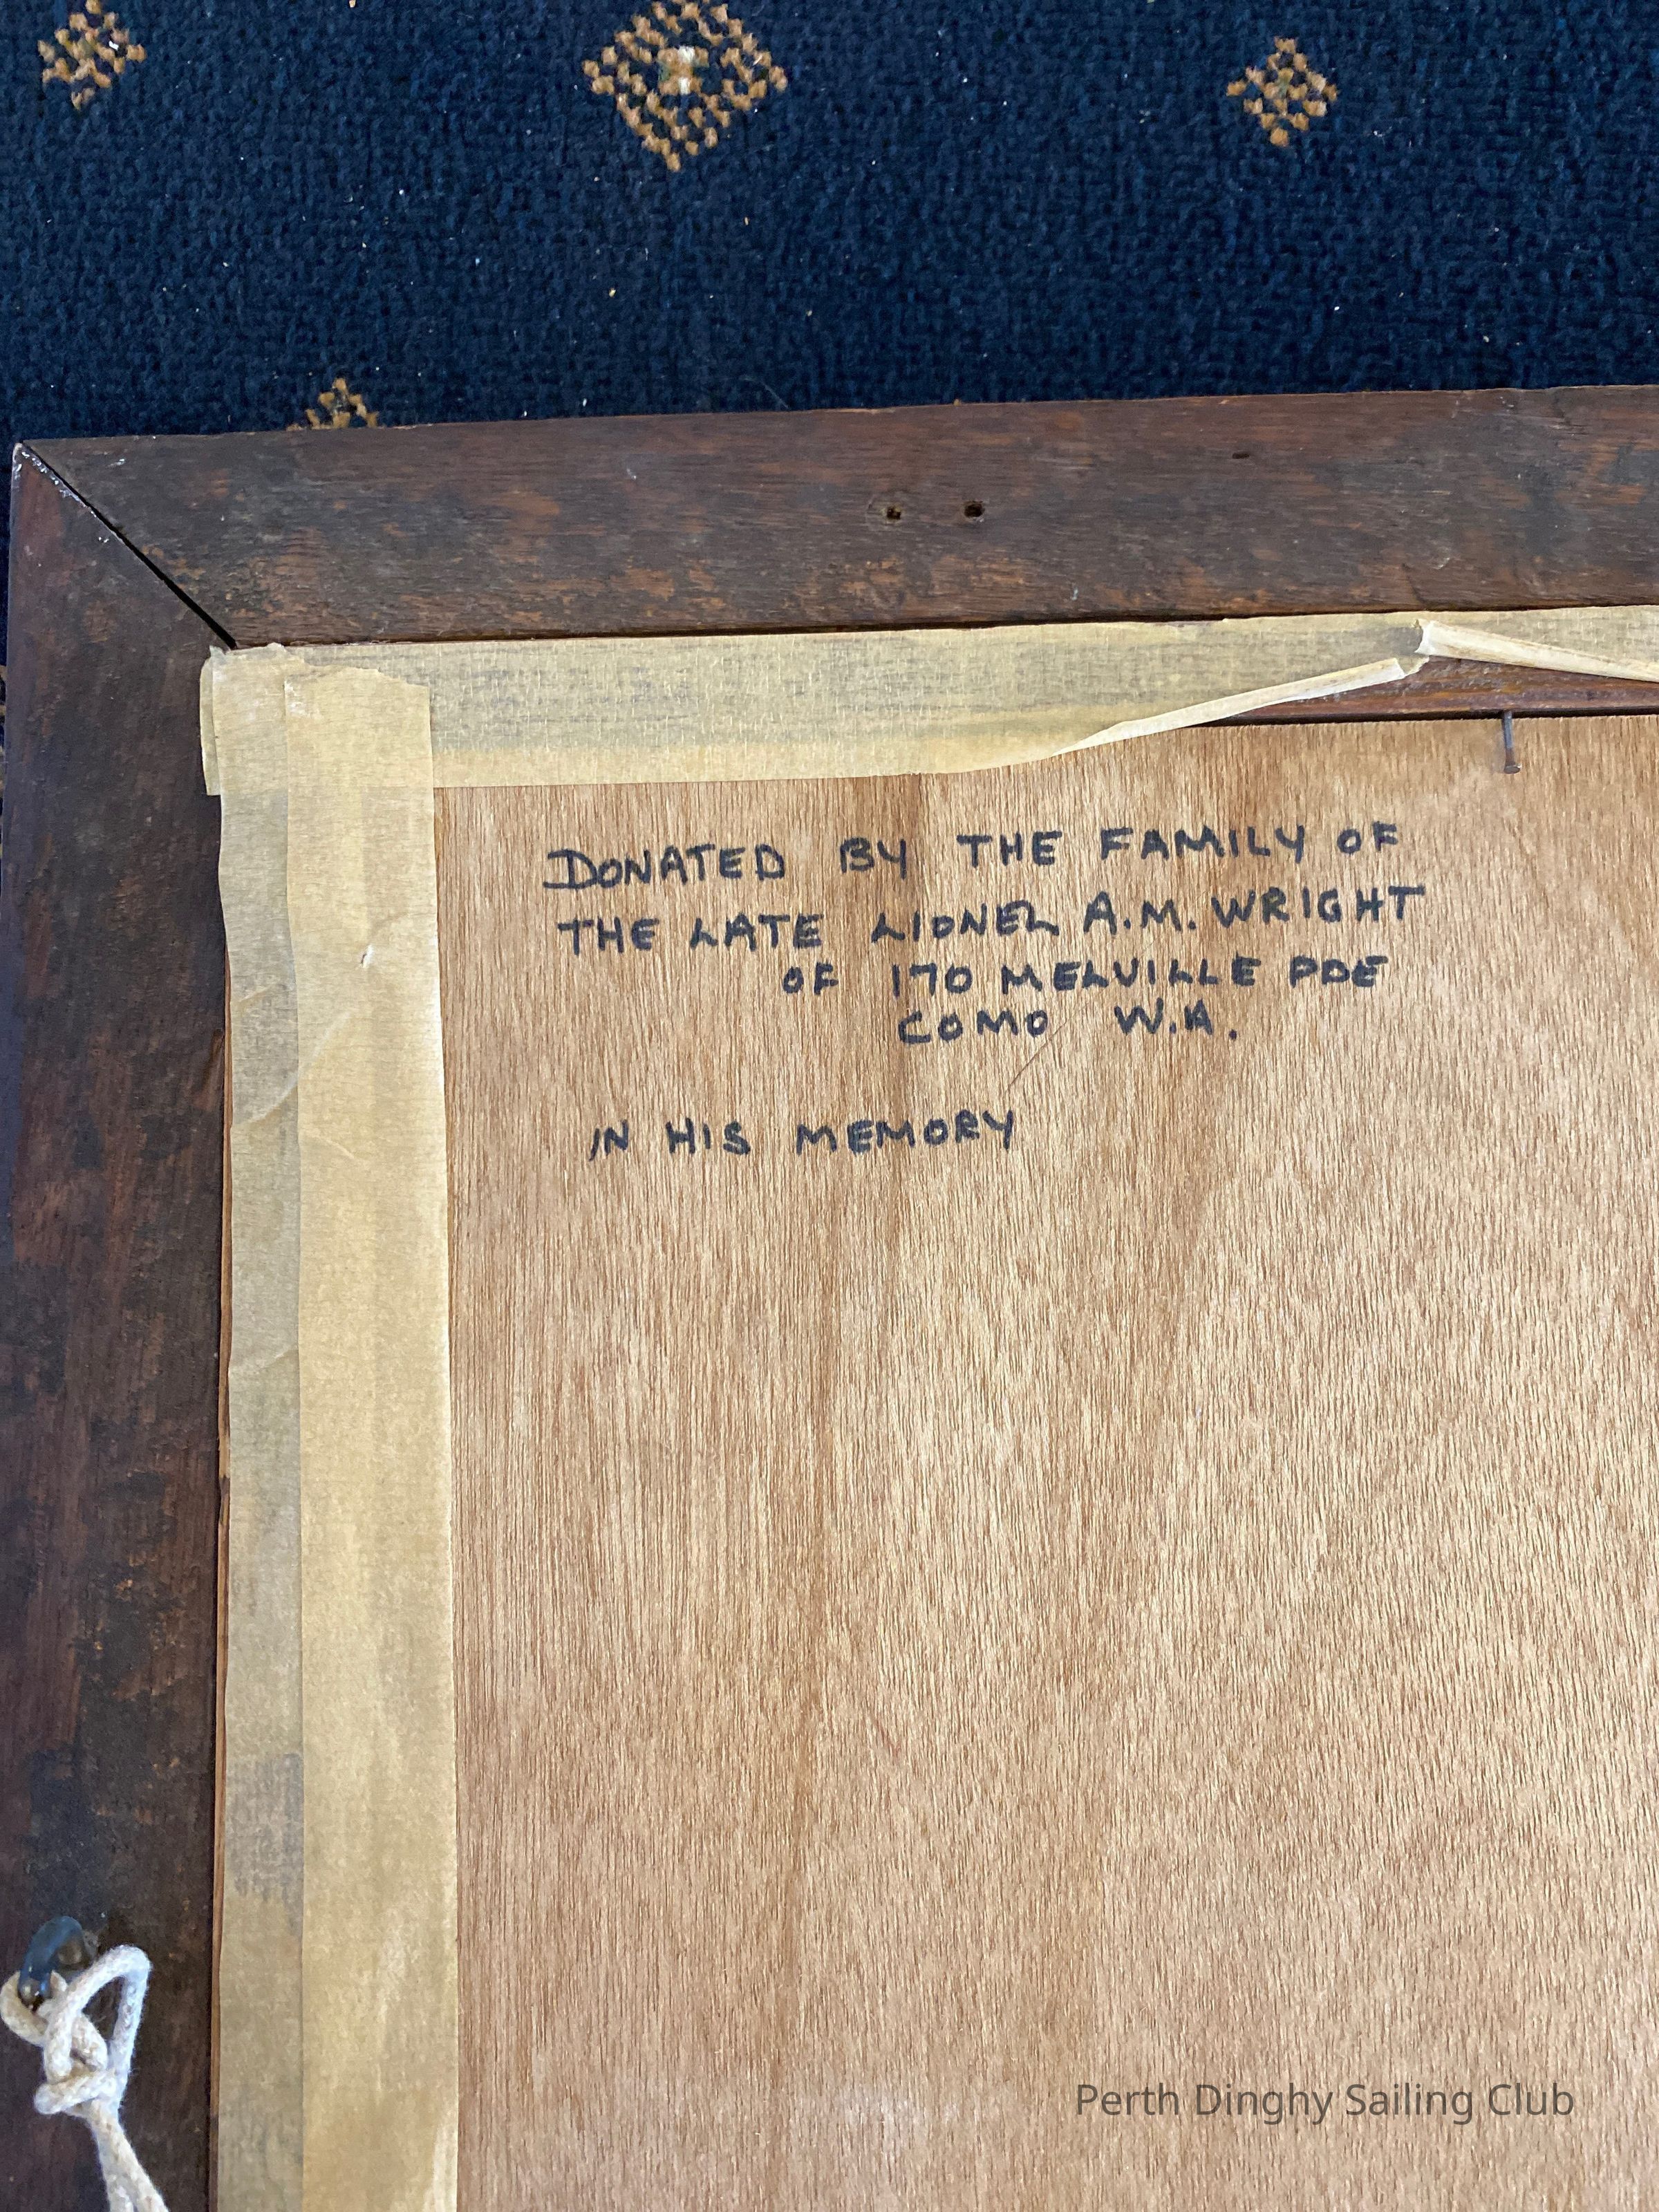 DONATED BY THE FAMILY OF
THE LATE LIONEL A.M. WRIGHT
OF 170 MELVILLE PDE
COMO W.A.
IN HIS MEMORY
Perth Dinghy Sailing Club